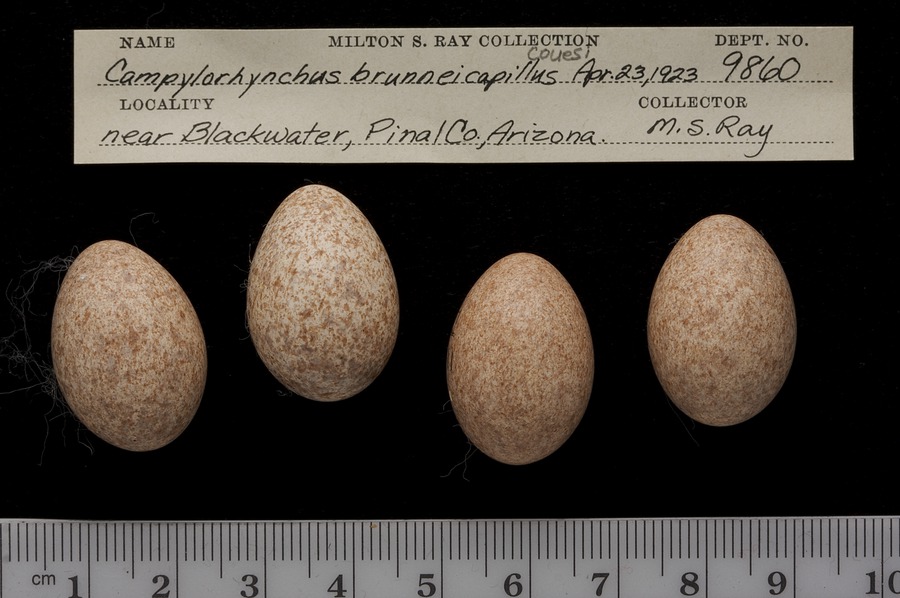 NAME MILTON S. RAY COLLECTION DEPT. NO.
couesi
Campylorhynchus brunneicapillus Apr. 23, 1923 9860
LOCALITY COLLECTOR
near Blackwater, Pinal Co., Arizona. M. S. Ray
cm 1 2 3 4 5 6 7 8 9 10